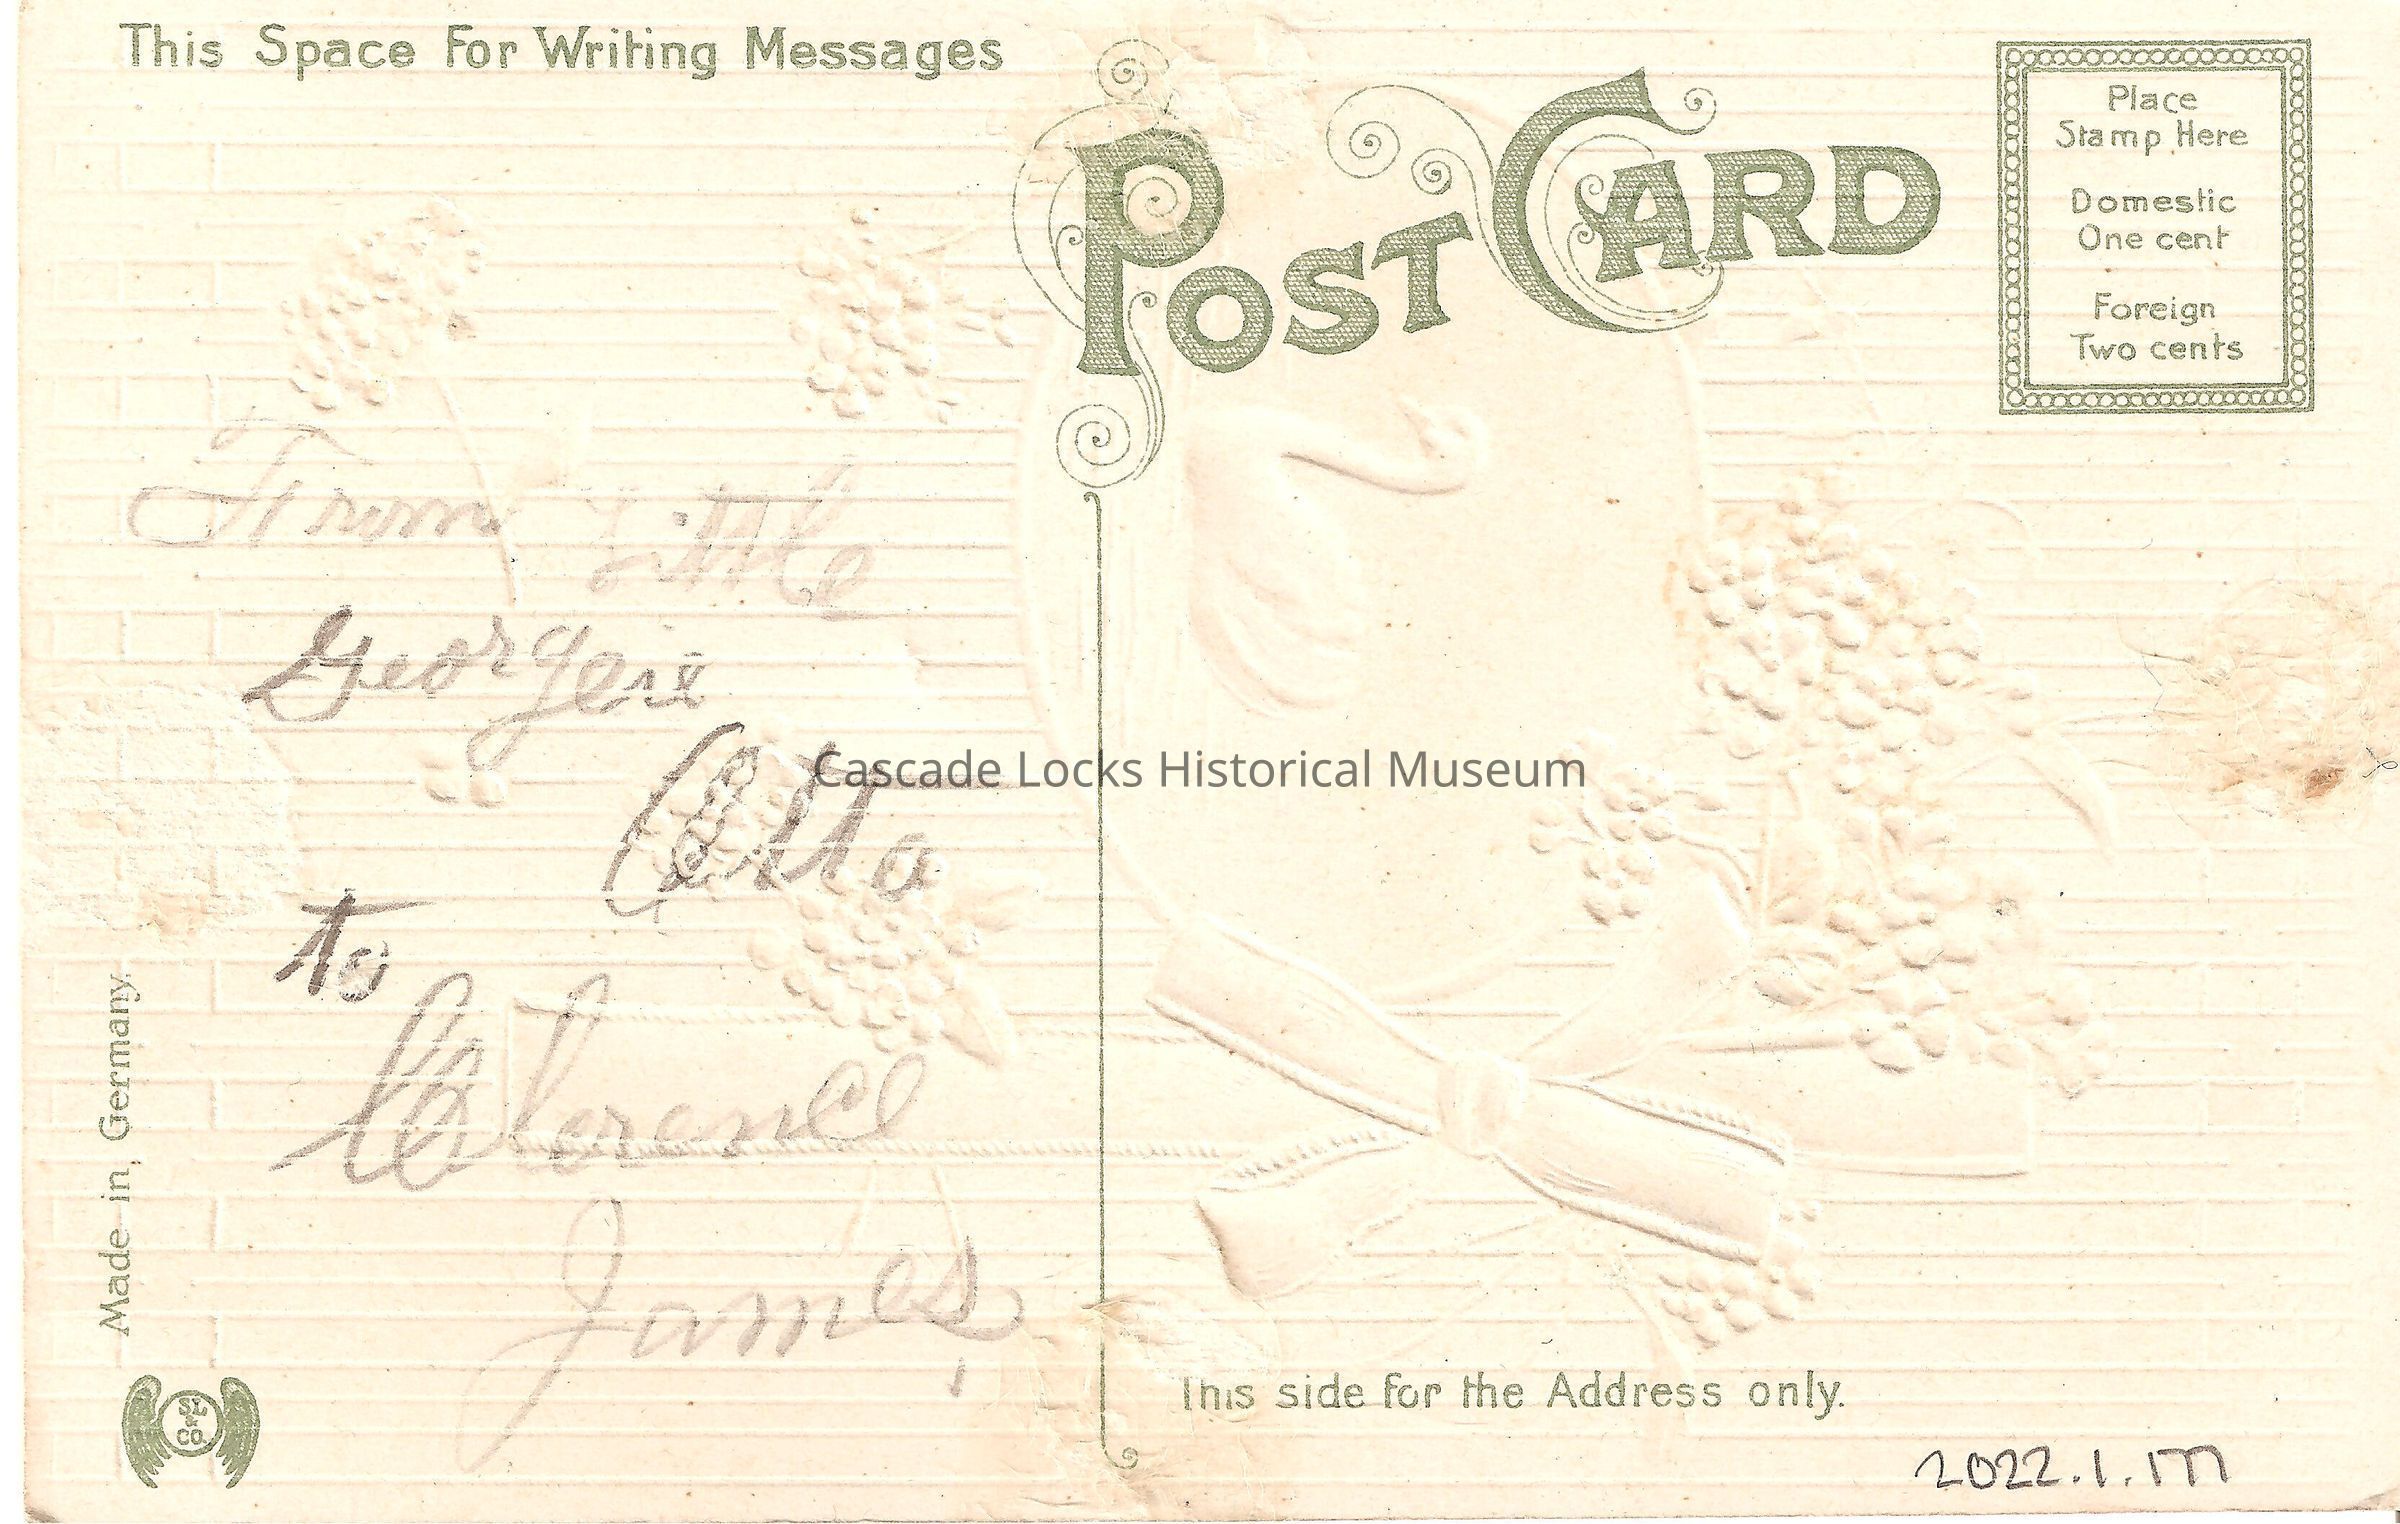 This Space For Writing Messages
POST CARD
Place
Stamp Here
Domestic
One cent
Foreign
Two cents
From Little
Georgeis
Otto
to
James
Cascade Locks Historical Museum
Made in Germany.
SL
&
CO.
This side for the Address only.
2022.1.177